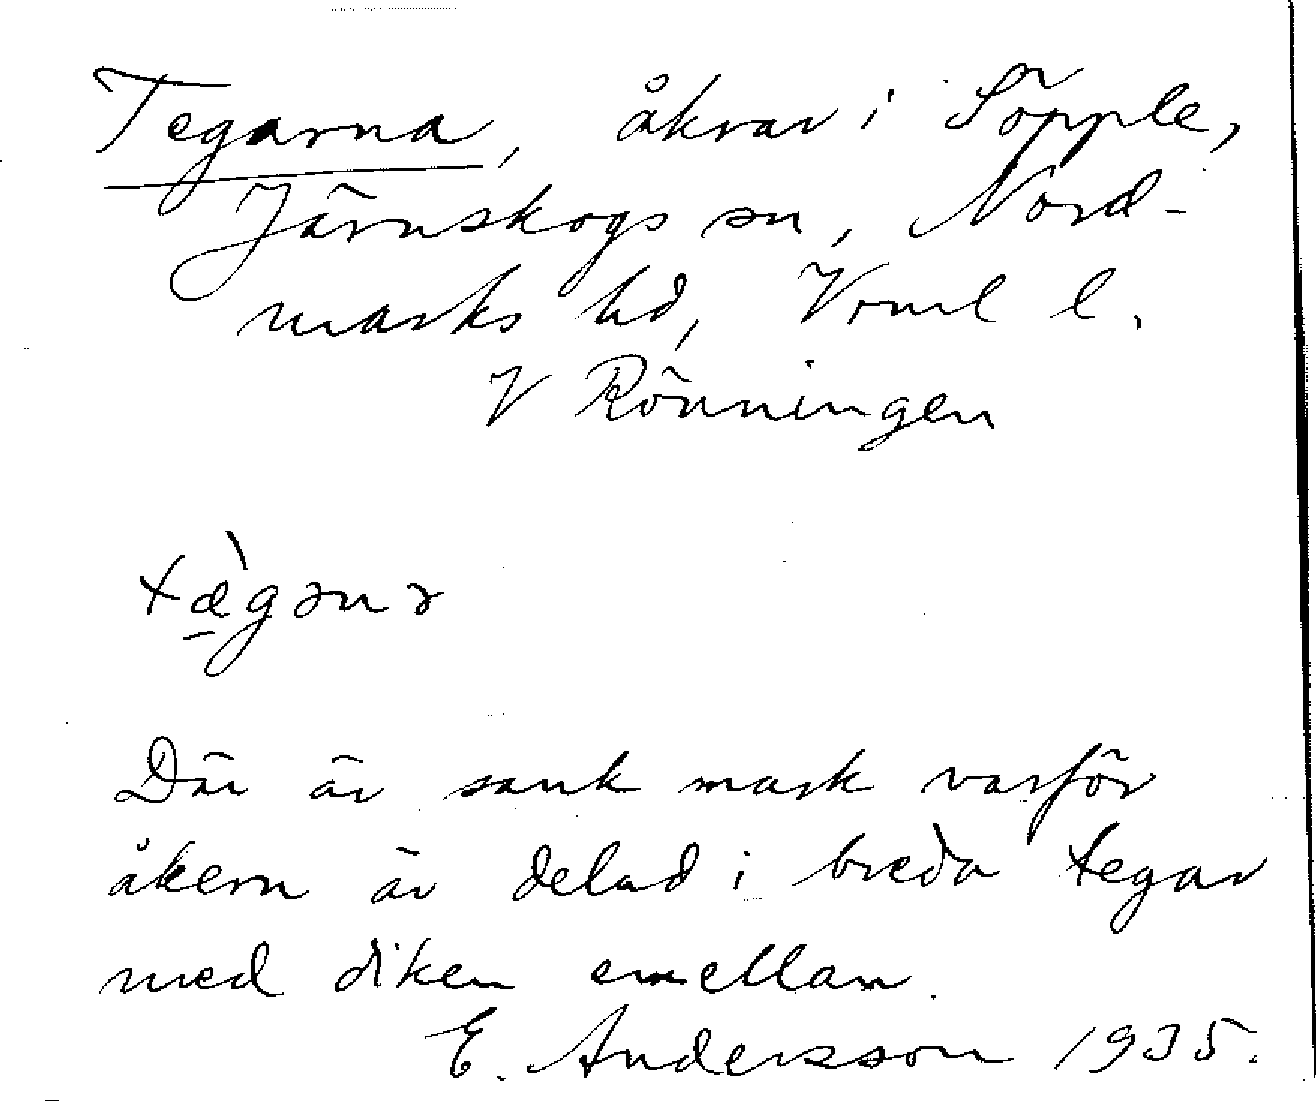 Tegarna, åkrar i Söpple,
Järnskogs sn, Nord-
marks hd, Vrml l.
V Rönningen
tæ̀gəna
Där är sank mark varför
åkern är delad i breda tegar
med diken emellan.
E. Andersson 1935.